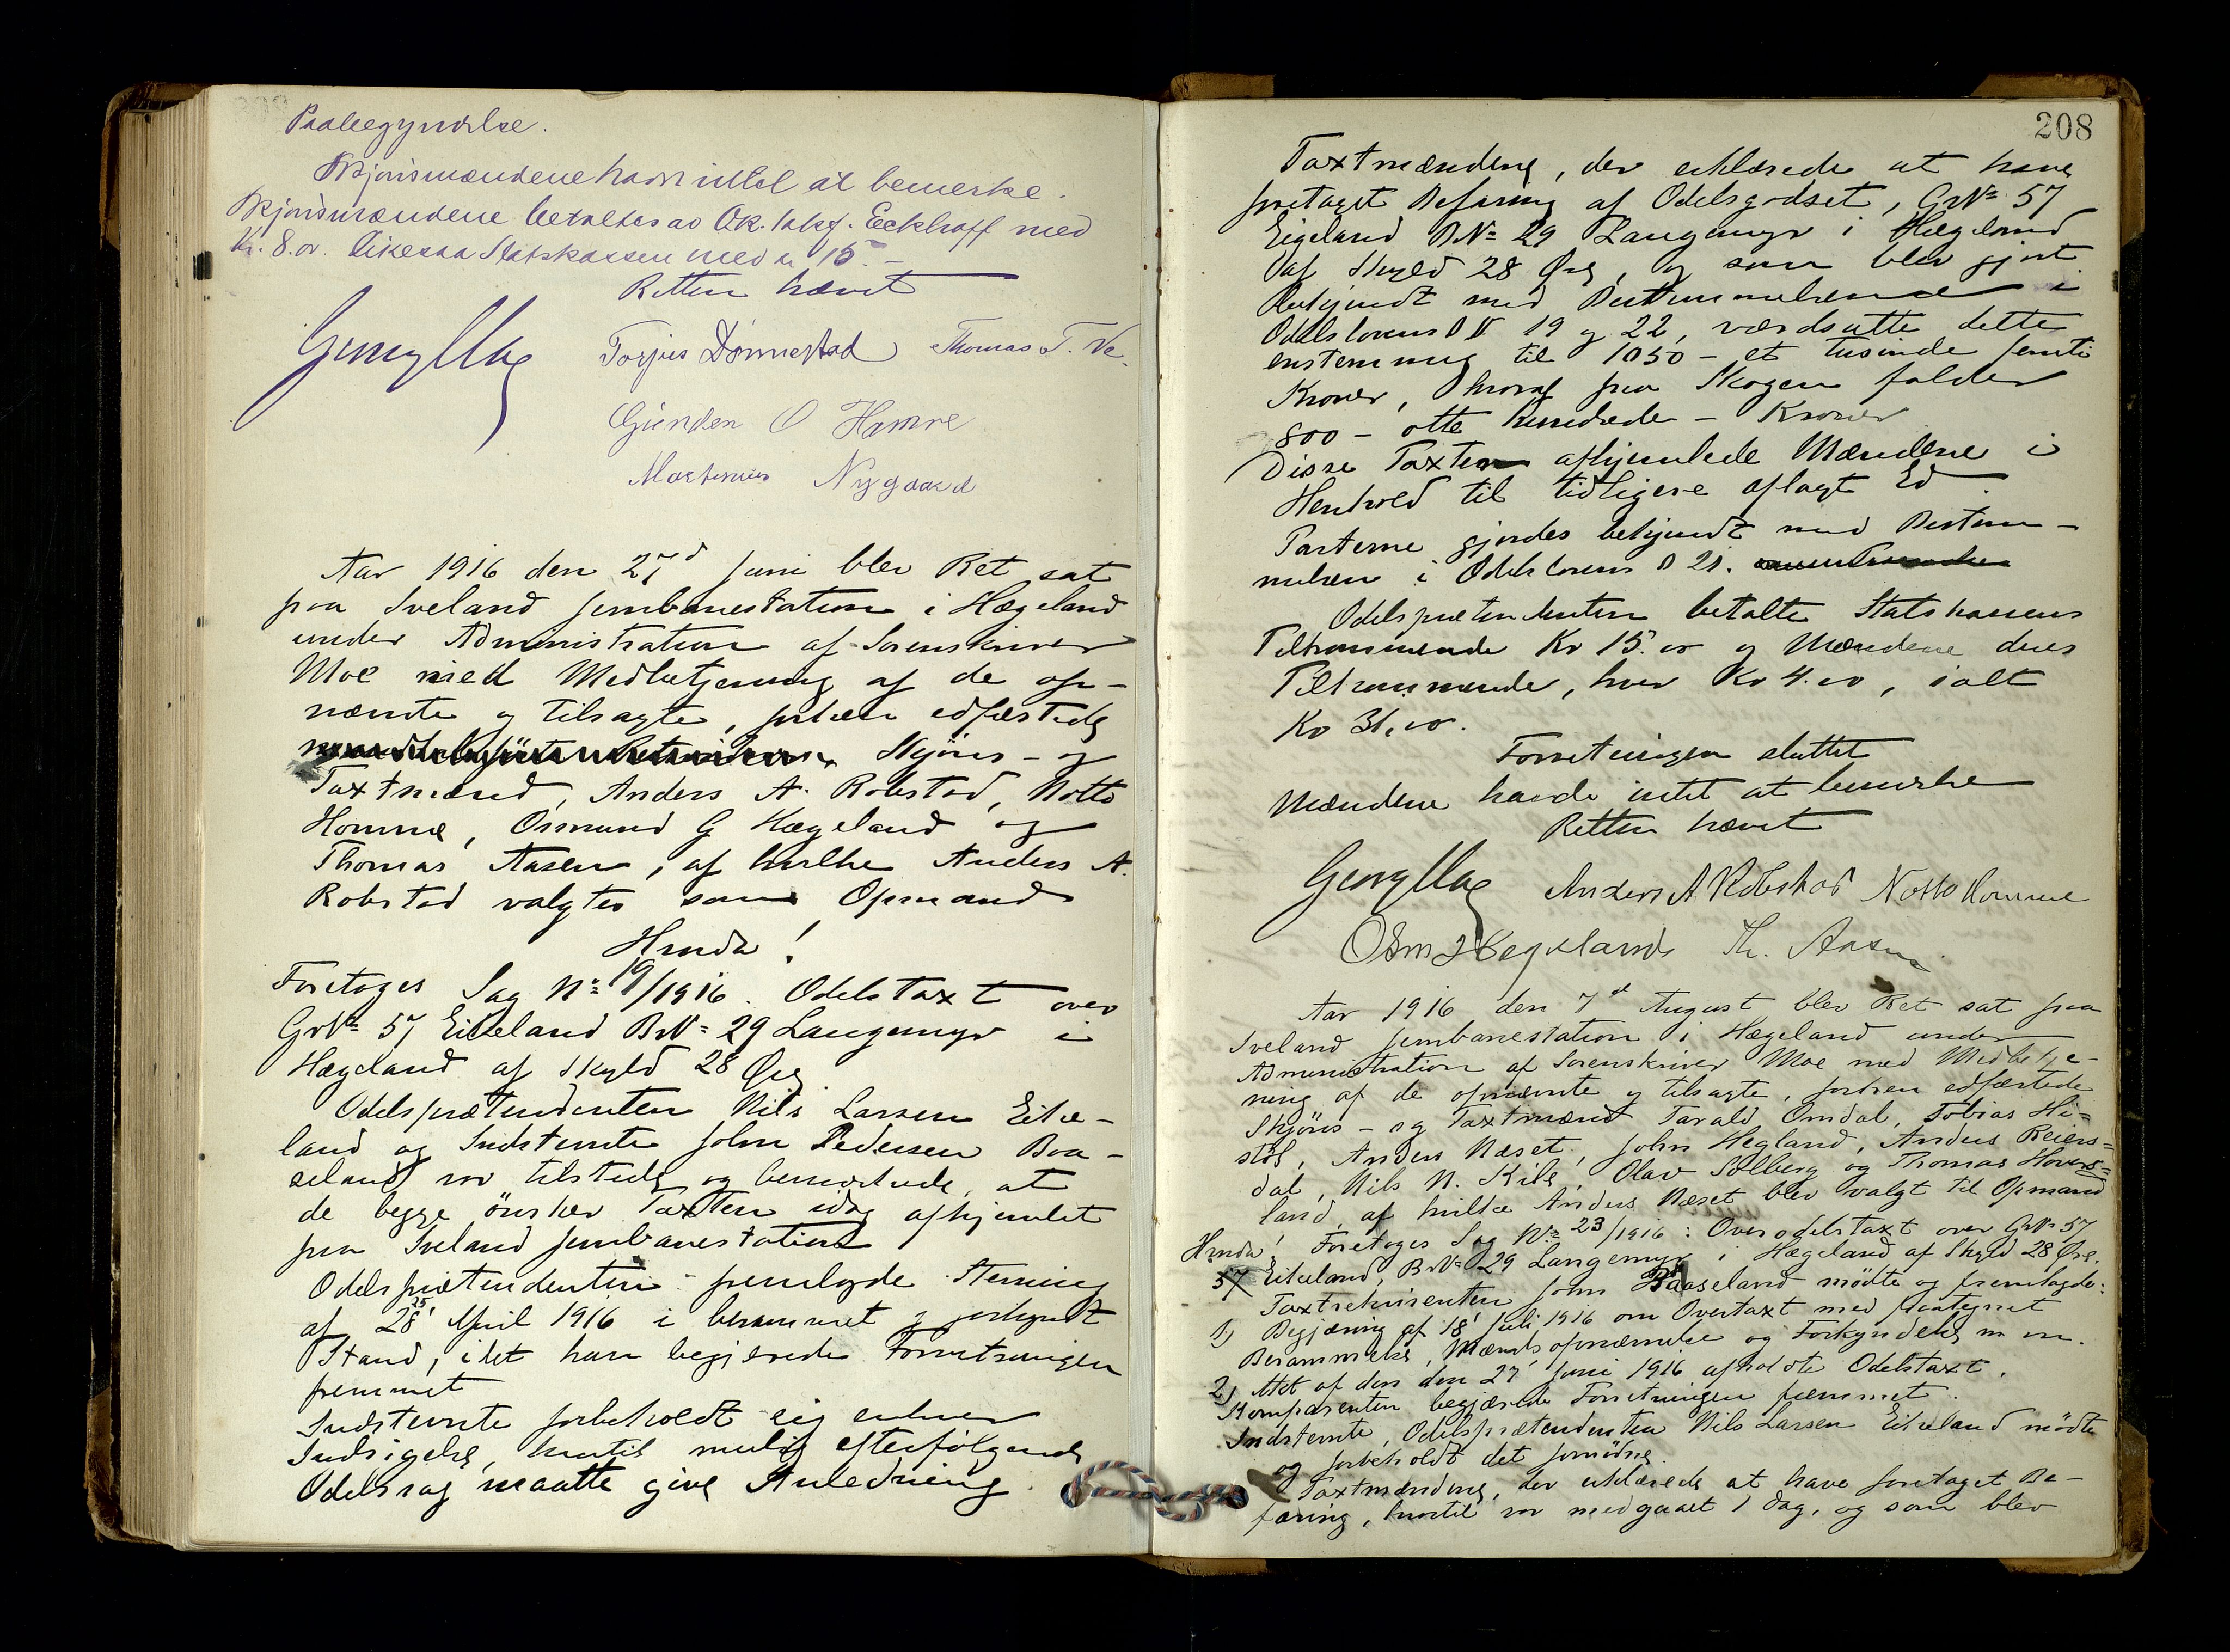 Paabegyndelse.
Skjønsmændene havde intet at bemerke.
Skjønsmændene betaltes av Ok. Eckhoff med
Kr. 8.00. Likesaa Statskassen med kr 15.-
Retten hævet
Georg Moe Torjus Dønnestad Thomas T. Ve.
Gunden O Hamre
Martinius Nygaard
Aar 1916 den 27d Juni blev Ret sat
paa Iveland Jernbanestation i Hægeland
under Administration af Sorenskriver
Moe med Medbetjening af de op-
nævnte og tilsagte, forhen edfæstede
Skjøns- og
Taxtmænd, Anders A. Robstad, Notto
Homme, Osmund G Hægeland og
Thomas Aasen, af hvilke Anders A.
Robstad valgtes som Opmand
Hvorda!
Foretoges Sag No 19/1916. Odelstaxt over
GrNo 57 Eikeland BrNo 29 Langemyr i
Hægeland af Skyld 28 Øre
Odelsprætendenten Nils Larsen Eike-
land og Indstevnte John Pedersen Baa-
seland var tilstede og bemerkede, at
de begge önsker Taxten idag afhjemlet
paa Iveland Jernbanestation
Odelsprætendenten fremlagde Stevning
af 28 25' April 1916 i berammet og forkyndt
Stand, idet han begjærede Forretningen
fremmet
Indstevnte forbeholdt sig enhver
Indsigelse, hvortil mulig efterfølgende
Odelssag maatte give Anledning.
208
Taxtmændene, der erklærede at have
foretaget Befaring af Odelsgodset, GrNo 57
Eigeland BNo 29 Langemyr i Hægeland
af Skyld 28 Øre, og som blev gjort
bekjendt med Bestemmelserne i
Odelslovens §§ 19 og 22, værdsatte dette
enstemmig til 1050 - et tusinde femti
Kroner, hvoraf paa Skogen falder
800 - otte hundrede - Kroner
Disse Taxter afhjemlede Mændene i
Henhold til tidligere aflagt Ed.
Parterne gjordes bekjendt med Bestem-
melsen i Odelslovens § 21.
Odelsprætendenten betalte Statskassens
Tilkommende Kr 15.00 og Mændene deres
Tilkommende, hver Kr 4.00, ialt
Kr 31.00.
Forretningen sluttet
Mændene havde intet at bemerke
Retten hævet
Georg Moe Anders A Robstad Notto Homme
Osm Hægeland Th. Aasen
Aar 1916 den 7d August blev Ret sat paa
Iveland Jernbanestation i Hægeland under
Administration af Sorenskriver Moe med Medbetje-
ning af de opnævnte og tilsagte, forhen edfæstede
Skjöns- og Taxtmænd Tarald Omdal, Tobias Hi=
stöl, Anders Næset, John Hegland, Anders Reiers=
dal, Nils N. Kile, Olav Solberg og Thomas Hovers=
land, af hvilke Anders Næset blev valgt til Opmand
Hvorda! Foretoges Sag No 23/1916: Overodelstaxt over GrNo 57
57 Eikeland, BrNo 29 Langemyr i Hægeland af Skyld 28 Øre.
Taxtrekvirenten John Baaseland mödte og fremlagde:
1) Begjæring af 18' Juli 1916 om Overtaxt med paategnet
Berammelse, Mændsopnævnelse og Forkyndelse m.m.
2) Akt af den den 27' Juni 1916 afholdte Odelstaxt.
Komparenten begjærede Forretningen fremmet.
Indstevnte, Odelsprætendenten Nils Larsen Eikeland mödte
og forbeholdt det fornödne.
Taxtmændene, der erklærede at have foretaget Be-
faring, hvortil var medgaaet 1 Dag, og som blev